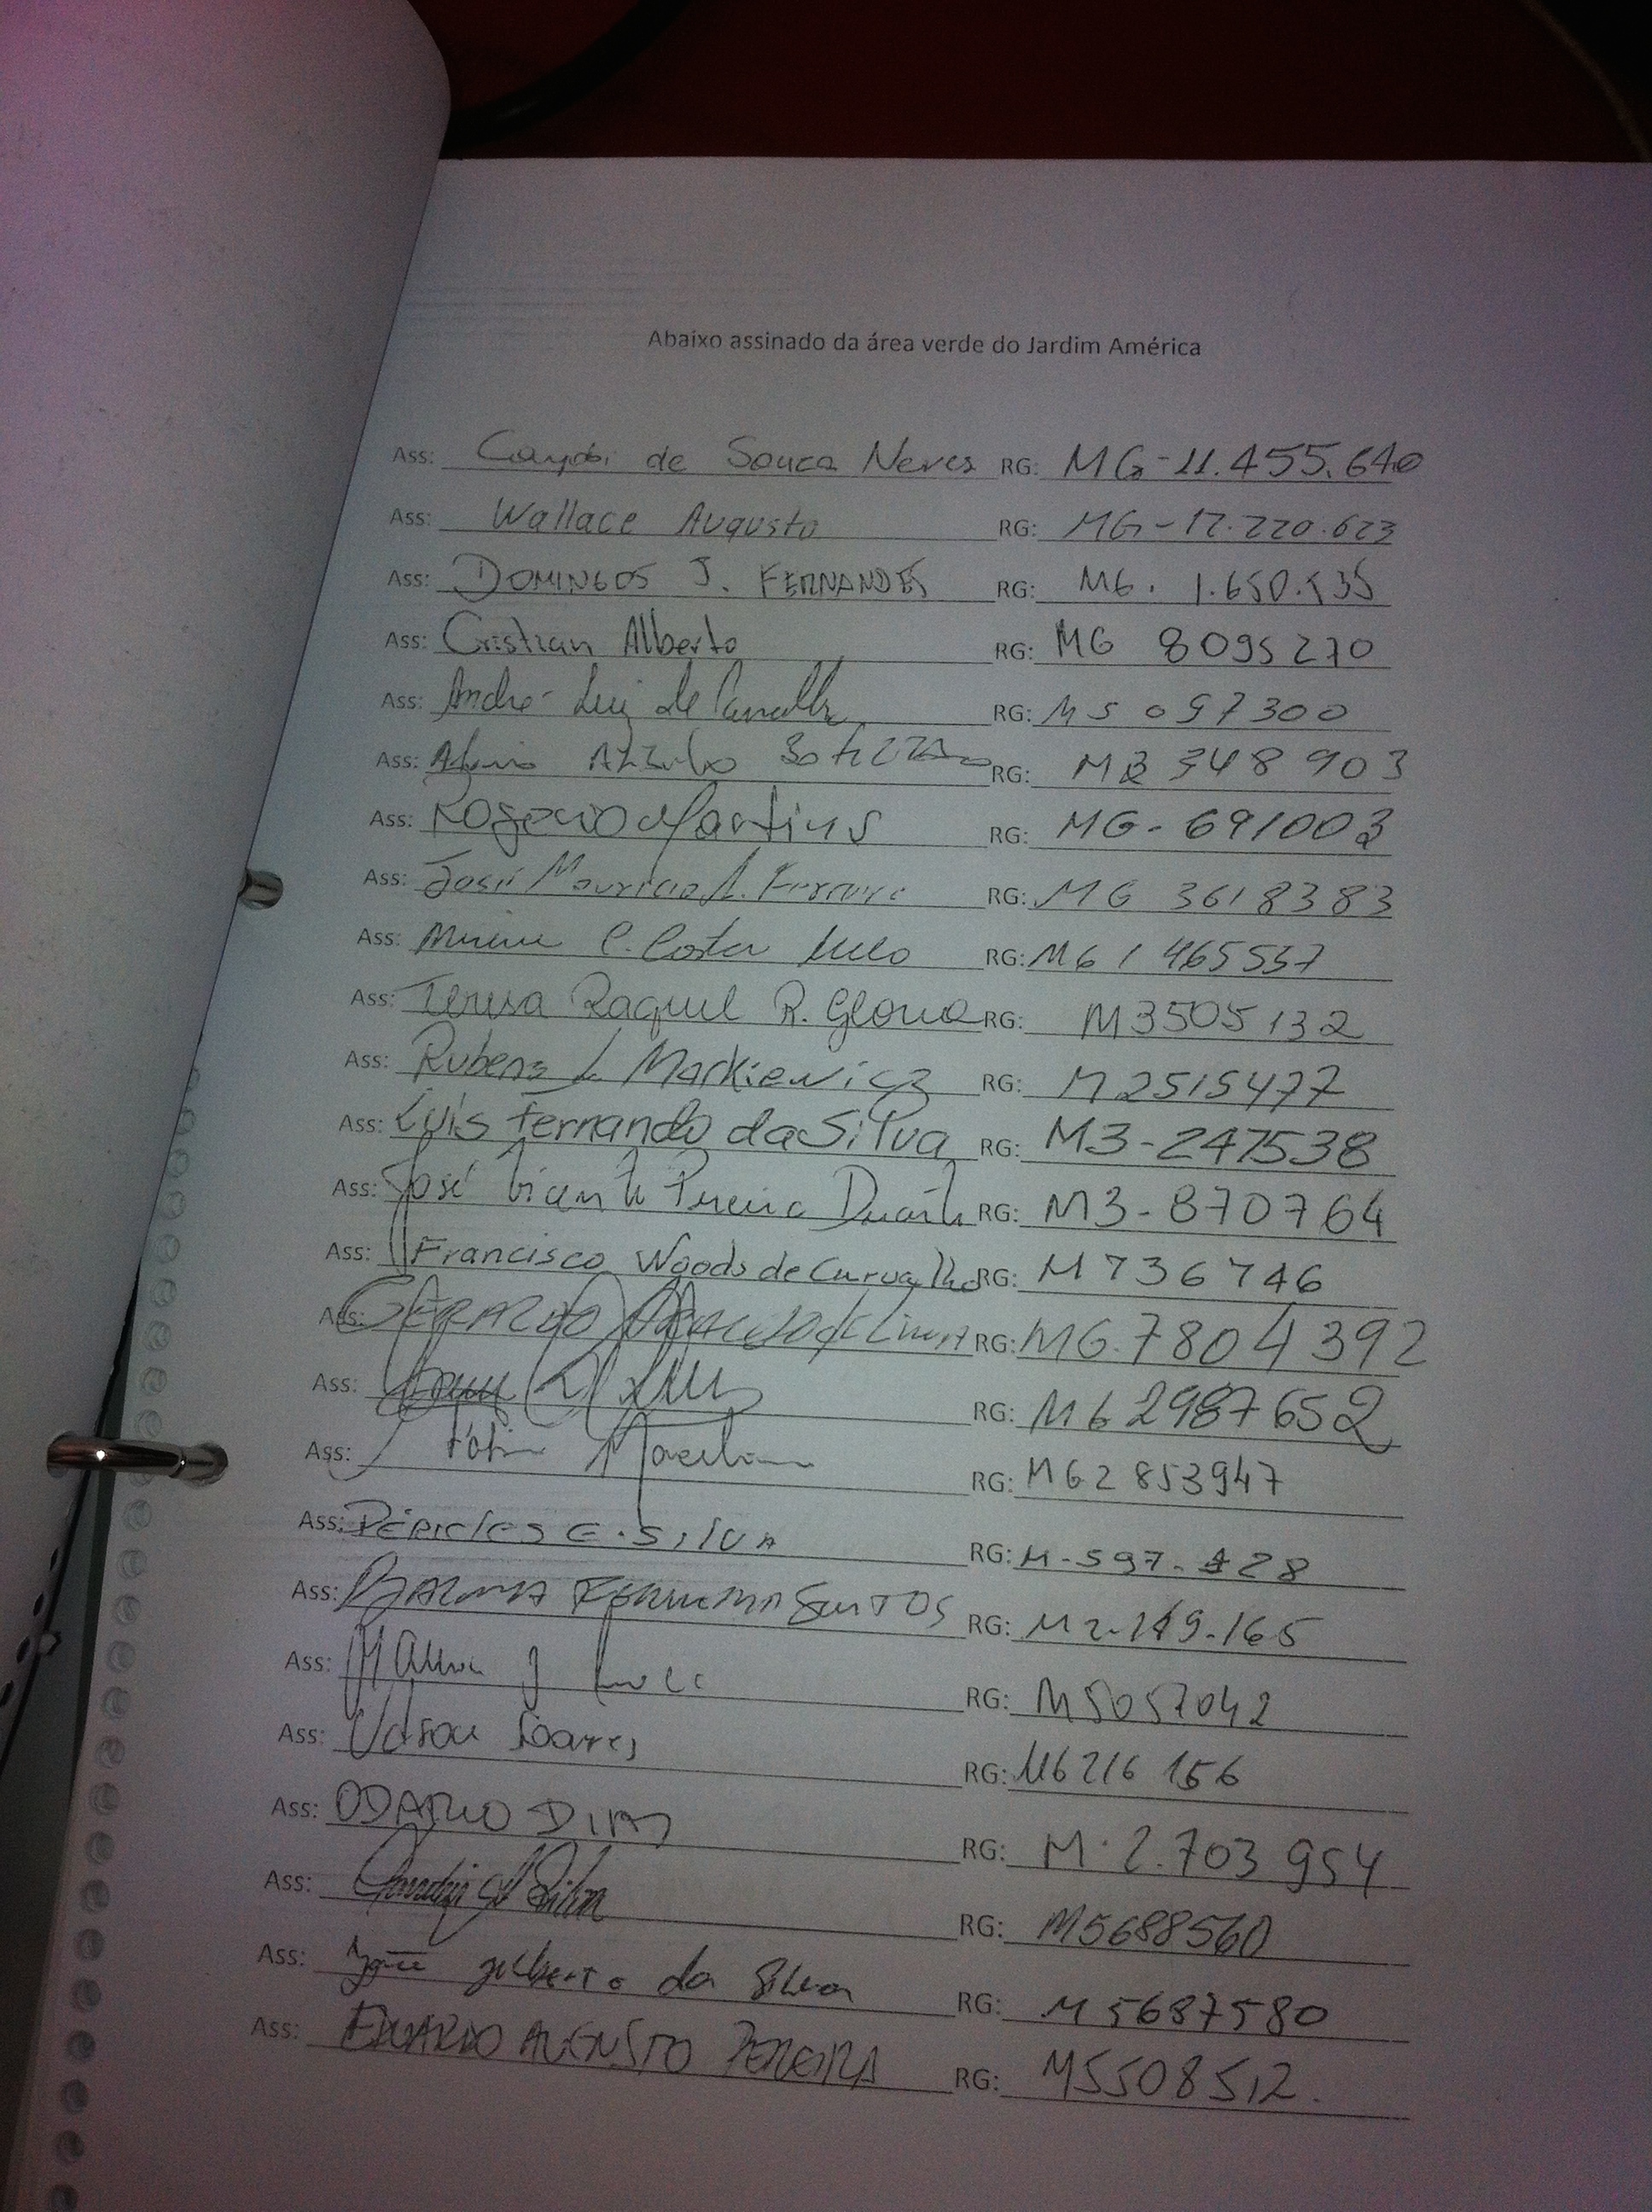 Abaixo assinado da área verde do Jardim América
Ass: de Souza Neves RG: MG-11.455.640
Ass: Wallace Augusto RG: MG-12.220.623
Ass: DOMINGOS J. FERNANDES RG: MG. 1.650.535
Ass: Cristian Alberto RG: MG 8095270
Ass: André Luiz de Carvalho RG: M5 097300
Ass: RG: 348 903
Ass: Rogerio Martins RG: MG-691003
Ass: José Mauricio A. Ferreira RG: MG 3618383
Ass: C. Costa Melo RG: MG 1 465537
Ass: Teresa Raquel R. Gloria RG: M3505132
Ass: Rubens L Markiewicz RG: M2515477
Ass: Luis Fernando da Silva RG: M3-247538
Ass: José Vicente Pereira Duarte RG: M3-870764
Ass: Francisco Woods de Carvalho RG: M736746
Ass: GERALDO de Lima RG: MG.7804392
Ass: RG: MG 2987652
Ass: RG: MG2853947
Ass: PÉRICLES E. SILVA RG: M-597.
Ass: SANTOS RG:
Ass: RG: M5057042
Ass: Udson Soares RG: MG 216 156
Ass: ODARIO DIAS RG: M.2.703 954
Ass: Silva RG: M5688560
Ass: gilberto da Silva RG: M5687580
Ass: EDUARDO AUGUSTO PEREIRA RG: M5508512.